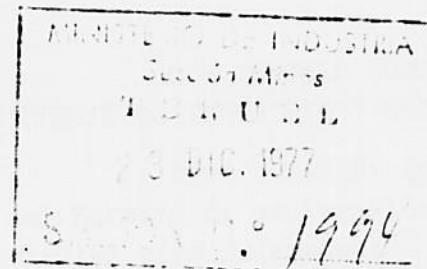 MINISTERIO DE INDUSTRIA
Sección Minas
TERUEL
23 DIC. 1977
N.º 1994